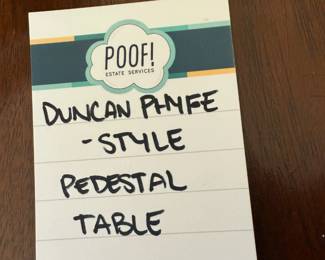 POOF!
ESTATE SERVICES
DUNCAN PHYFE
-STYLE
PEDESTAL
TABLE